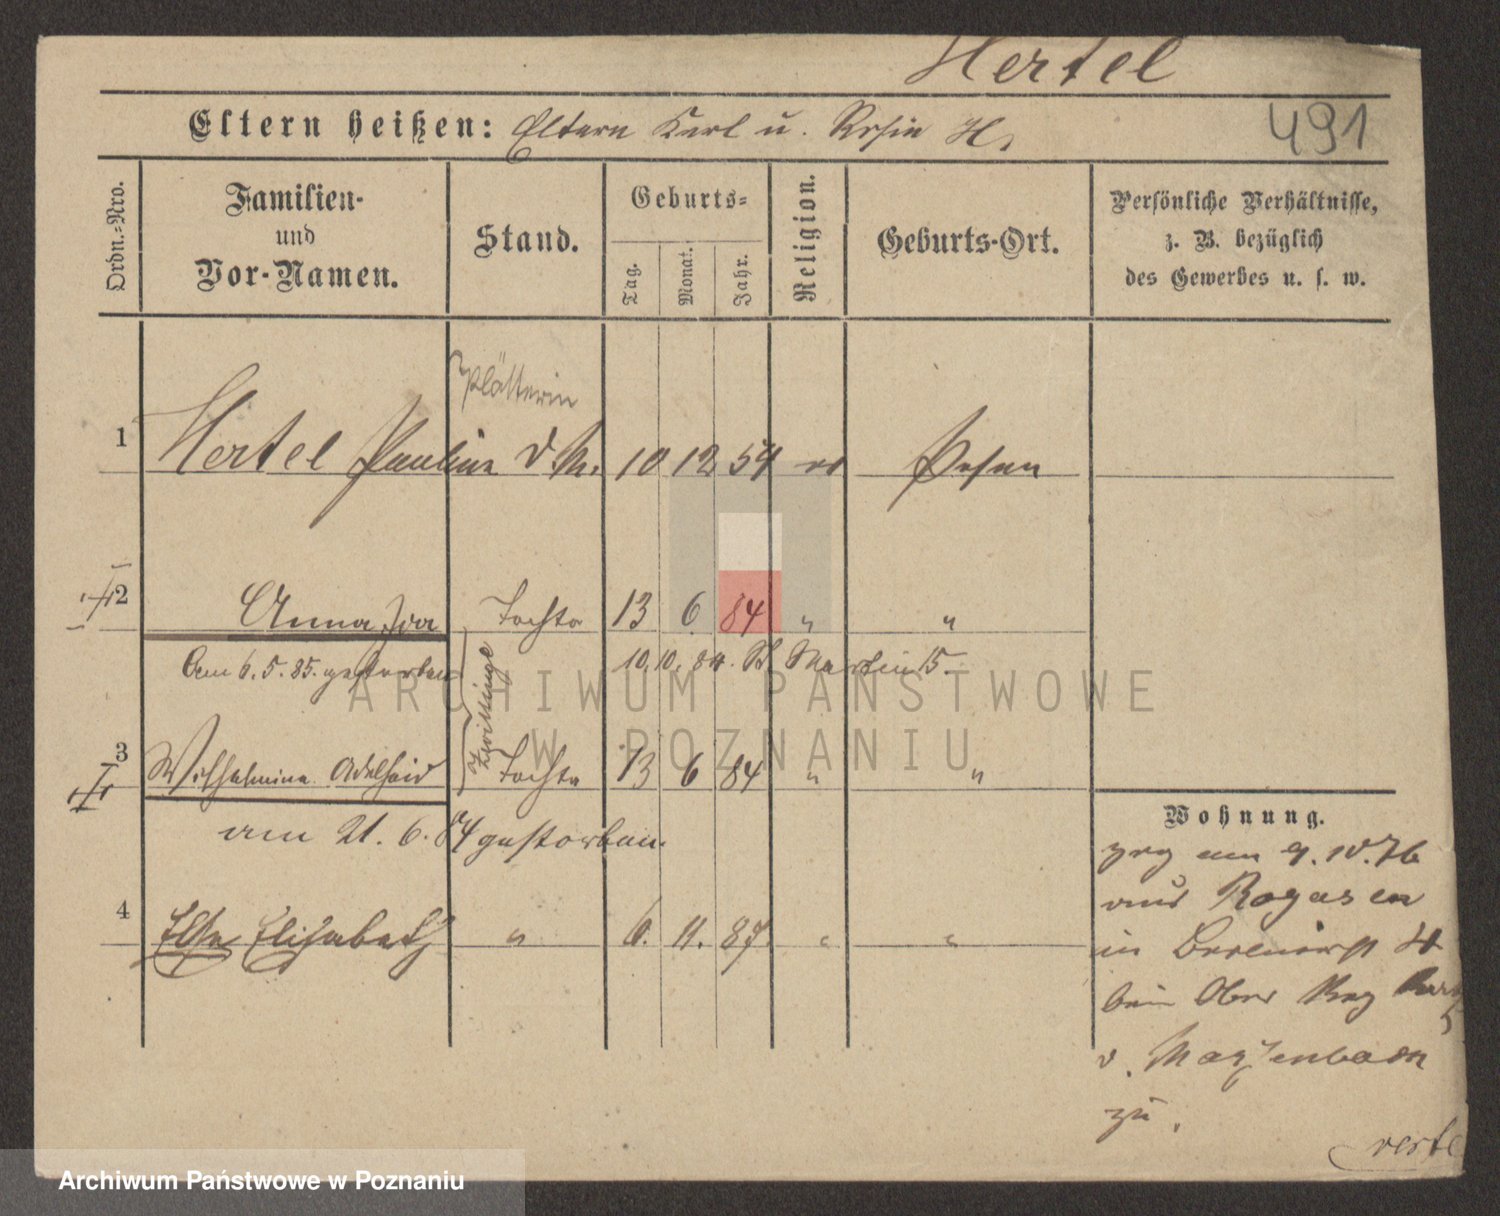 Hertel
Eltern heißen: Eltern Karl u. Rosin H.
491
Ordn.-Nro.
Familien-
und
Vor-Namen.
Stand.
Geburts-
Tag.
Monat.
Jahr.
Religion.
Geburts-Ort.
Persönliche Verhältnisse,
z. B. bezüglich
des Gewerbes u. s. w.
Plätterin
1 Hertel Pauline D. M. 10 12 54 ev Posen
2 Anna Ida Tochter 13 6 84 " "
Am 6. 5. 85. gestorben 10. 10. 84. St. Martin 15.
Zwillinge
3 Wilhelmine Adelheid Tochter 13 6 84 " "
am 21. 6. 84 gestorben.
4 Else Elisabeth " 6. 11. 87 " "
Wohnung.
zog am 9. 10. 76
aus Rogasen
in
beim Ober Reg
v.
zu.
verte
ARCHIWUM PAŃSTWOWE
W POZNANIU
Archiwum Państwowe w Poznaniu